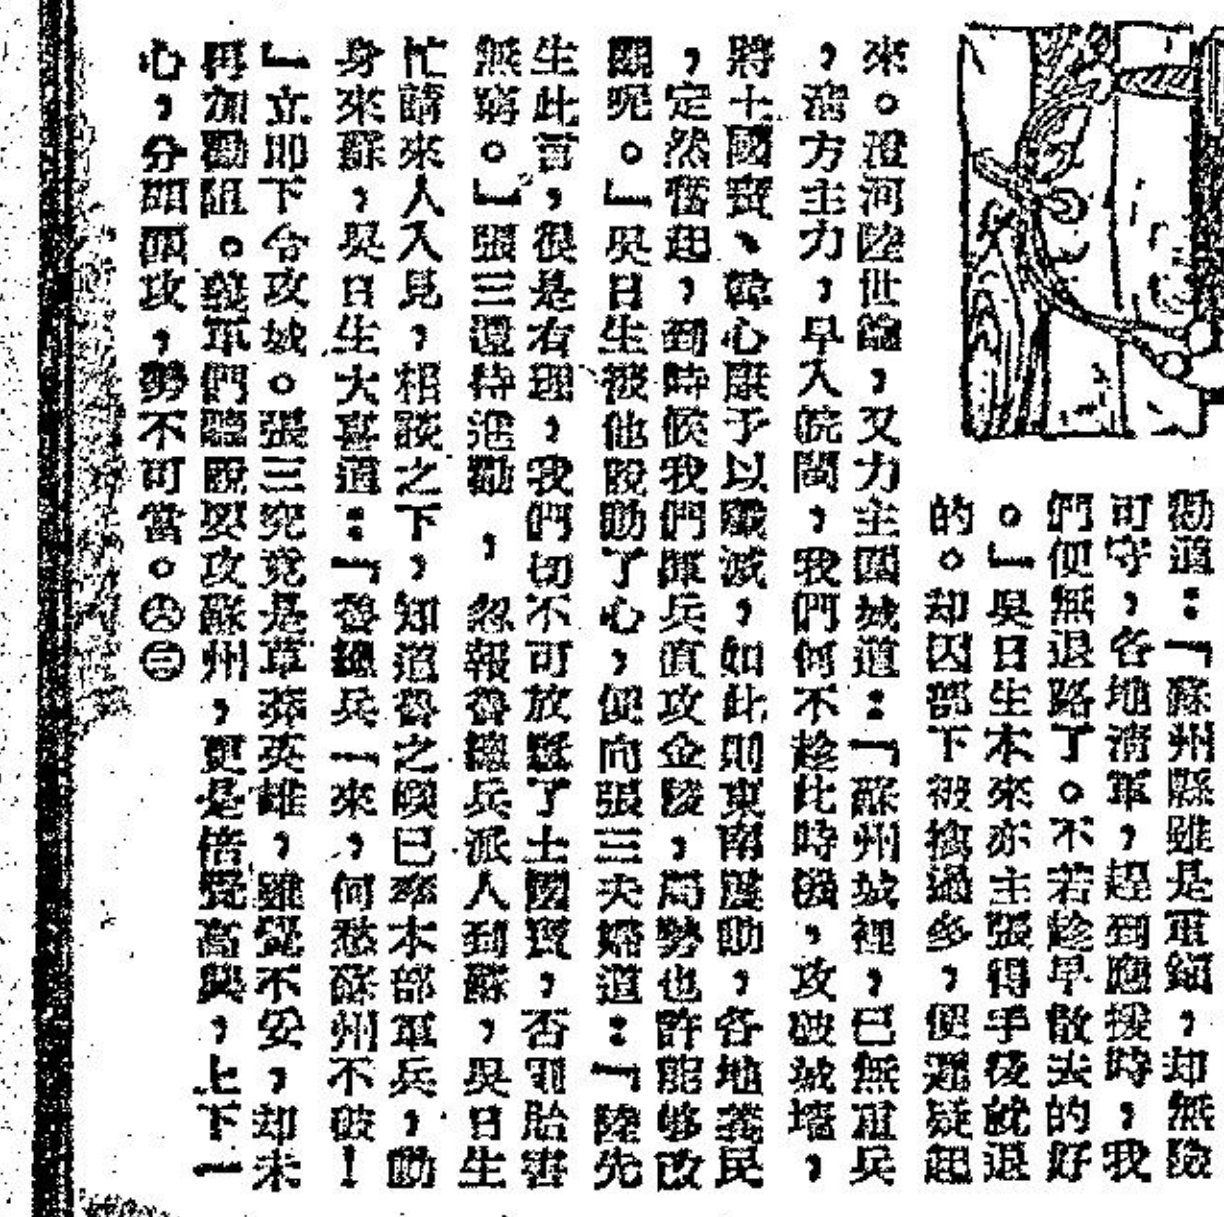 勸道：「蘇州縣雖是重鎮，却無險
可守，各地清軍，趕到應援時，我
們便無退路了。不若趁早散去的好
。」吳日生本來亦主張得手後就退
的。却因部下被擒過多，便遲疑起
來。澄河陸世鑰，又力主圍城道：「蘇州城裡，已無重兵
，清方主力，早入皖閩，我們何不趁此時機，攻破城墻，
將士國寶、韓心康予以殲滅，如此則東南震動，各地義民
，定然奮起，到時候我們揮兵直攻金陵，局勢也許能够改
觀呢。」吳日生被他說動了心，便向張三夫婦道：「陸先
生此言，很是有理，我們切不可放鬆了士國寶，否則貽害
無窮。」張三還待進勸，忽報魯總兵派人到蘇，吳日生
忙請來人入見，相談之下，知道魯之璵已率本部軍兵，動
身來蘇，吳日生大喜道：「魯總兵一來，何愁蘇州不破！
」立即下令攻城。張三究竟是草莽英雄，雖覺不安，却未
再加勸阻。義軍們聽說要攻蘇州，更是倍覺高興，上下一
心，分四面攻，勢不可當。㊅㊂